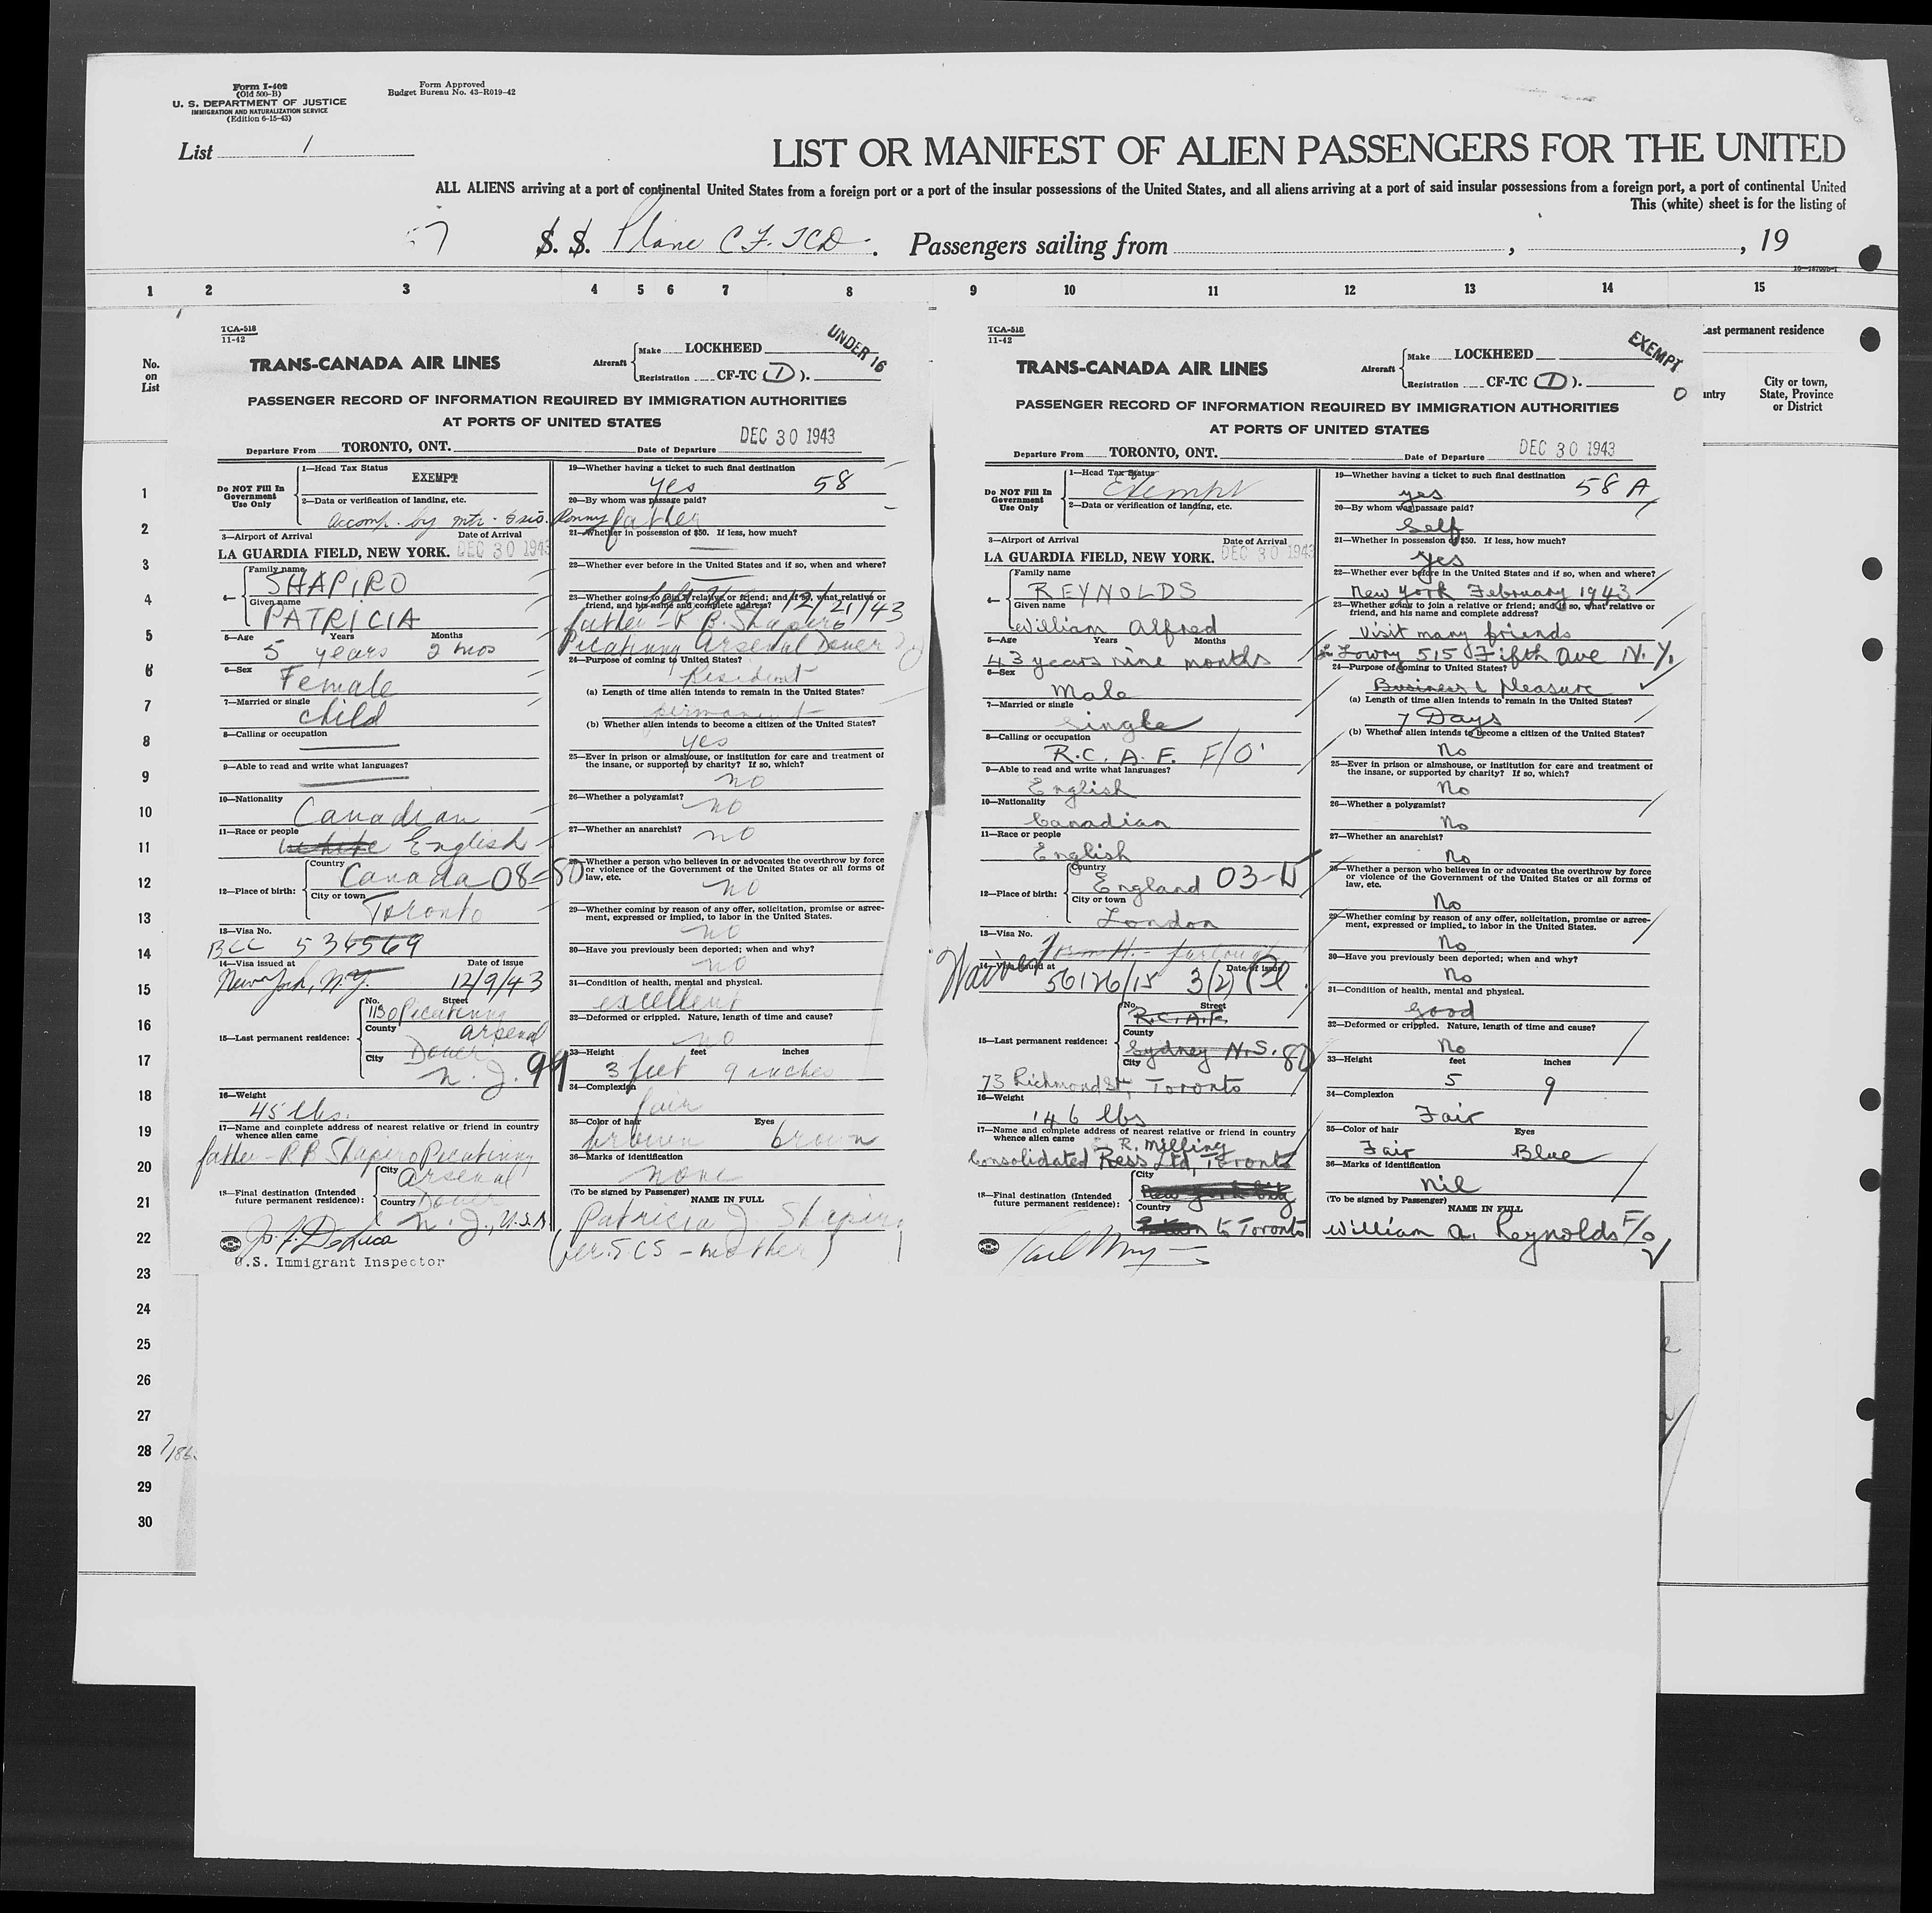 Form I-402
(Old 500-B)
U. S. DEPARTMENT OF JUSTICE
IMMIGRATION AND NATURALIZATION SERVICE
(Edition 6-15-43)
Form Approved
Budget Bureau No. 43-R019-42
List 1
LIST OR MANIFEST OF ALIEN PASSENGERS FOR THE UNITED
ALL ALIENS arriving at a port of continental United States from a foreign port or a port of the insular possessions of the United States, and all aliens arriving at a port of said insular possessions from a foreign port, a port of continental United
This (white) sheet is for the listing of
S. S. Plane C.F. TCD. Passengers sailing from , , 19
1 2 3 4 5 6 7 8 9 10 11 12 13 14 15
No.
on
List
TCA-518
11-42
TRANS-CANADA AIR LINES
Aircraft
Make LOCKHEED
Registration CF-TC (D).
UNDER 16
PASSENGER RECORD OF INFORMATION REQUIRED BY IMMIGRATION AUTHORITIES
AT PORTS OF UNITED STATES
Departure From TORONTO, ONT. Date of Departure DEC 30 1943
Do NOT Fill In
Government
Use Only
1—Head Tax Status
EXEMPT
2—Data or verification of landing, etc.
accomp. by mtr. & sis. Ronny
3—Airport of Arrival Date of Arrival
LA GUARDIA FIELD, NEW YORK. DEC 30 1943
4— Family name
SHAPIRO
Given name
PATRICIA
5—Age Years Months
5 years 2 mos
6—Sex
Female
7—Married or single
child
8—Calling or occupation
9—Able to read and write what languages?
10—Nationality
Canadian
11—Race or people
white English
12—Place of birth:
Country
Canada 08-80
City or town
Toronto
13—Visa No.
BCC 534569
14—Visa issued at Date of issue
New York, N.Y. 12/9/43
15—Last permanent residence:
No. Street
1130 Picatinny
County Arsenal
City Dover
N. J. 99
16—Weight
45 lbs.
17—Name and complete address of nearest relative or friend in country
whence alien came
father - R B Shapiro Picatinny
18—Final destination (Intended
future permanent residence):
City
Arsenal
Country Dover
N. J., U.S.A
U.S. Immigrant Inspector
19—Whether having a ticket to such final destination
yes 58
20—By whom was passage paid?
father
21—Whether in possession of $50. If less, how much?
22—Whether ever before in the United States and if so, when and where?
12/21/43
23—Whether going to join a relative or friend; and if so, what relative or
friend, and his name and complete address?
father - R B. Shapiro
Picatinny Arsenal Dover
24—Purpose of coming to United States?
Resident
(a) Length of time alien intends to remain in the United States?
permanent
(b) Whether alien intends to become a citizen of the United States?
yes
25—Ever in prison or almshouse, or institution for care and treatment of
the insane, or supported by charity? If so, which?
no
26—Whether a polygamist?
no
27—Whether an anarchist?
no
28—Whether a person who believes in or advocates the overthrow by force
or violence of the Government of the United States or all forms of
law, etc.
no
29—Whether coming by reason of any offer, solicitation, promise or agree-
ment, expressed or implied, to labor in the United States.
no
30—Have you previously been deported; when and why?
no
31—Condition of health, mental and physical.
excellent
32—Deformed or crippled. Nature, length of time and cause?
no
33—Height feet inches
3 feet 9 inches
34—Complexion
fair
35—Color of hair Eyes
brown brown
36—Marks of identification
none
(To be signed by Passenger) NAME IN FULL
Patricia J Shapiro
(per. S C S - mother)
TCA-518
11-42
TRANS-CANADA AIR LINES
Aircraft
Make LOCKHEED
Registration CF-TC (D).
EXEMPT
0
PASSENGER RECORD OF INFORMATION REQUIRED BY IMMIGRATION AUTHORITIES
AT PORTS OF UNITED STATES
Departure From TORONTO, ONT. Date of Departure DEC 30 1943
Do NOT Fill In
Government
Use Only
1—Head Tax Status
Exempt
2—Data or verification of landing, etc.
3—Airport of Arrival Date of Arrival
LA GUARDIA FIELD, NEW YORK. DEC 30 1943
4— Family name
REYNOLDS
Given name
William Alfred
5—Age Years Months
43 years nine months
6—Sex
Male
7—Married or single
Single
8—Calling or occupation
R.C.A.F. F/O
9—Able to read and write what languages?
English
10—Nationality
Canadian
11—Race or people
English
12—Place of birth:
Country
England 03-
City or town
London
13—Visa No.
Form H. - furlough
14—Visa issued at Date of issue
Waived 56126/15 3(2)
15—Last permanent residence:
No. Street
R.C.A.F.
County
Sydney N.S. 80
City
73 Richmond St, Toronto
16—Weight
146 lbs
17—Name and complete address of nearest relative or friend in country
whence alien came
R. Milling
Consolidated Press Ltd, Toronto
18—Final destination (Intended
future permanent residence):
City
New York City
Country
to Toronto
19—Whether having a ticket to such final destination
yes 58 A
20—By whom was passage paid?
Self
21—Whether in possession of $50. If less, how much?
yes
22—Whether ever before in the United States and if so, when and where?
New York February 1943
23—Whether going to join a relative or friend; and if so, what relative or
friend, and his name and complete address?
Visit many friends
Lowry 515 Fifth Ave N.Y.
24—Purpose of coming to United States?
Business & Pleasure
(a) Length of time alien intends to remain in the United States?
7 Days
(b) Whether alien intends to become a citizen of the United States?
No
25—Ever in prison or almshouse, or institution for care and treatment of
the insane, or supported by charity? If so, which?
No
26—Whether a polygamist?
No
27—Whether an anarchist?
No
28—Whether a person who believes in or advocates the overthrow by force
or violence of the Government of the United States or all forms of
law, etc.
No
29—Whether coming by reason of any offer, solicitation, promise or agree-
ment, expressed or implied, to labor in the United States.
No
30—Have you previously been deported; when and why?
No
31—Condition of health, mental and physical.
good
32—Deformed or crippled. Nature, length of time and cause?
No
33—Height feet inches
5 9
34—Complexion
Fair
35—Color of hair Eyes
Fair Blue
36—Marks of identification
nil
(To be signed by Passenger) NAME IN FULL
William A. Reynolds F/O
Last permanent residence
City or town,
State, Province
or District
1
2
3
4
5
6
7
8
9
10
11
12
13
14
15
16
17
18
19
20
21
22
23
24
25
26
27
28
29
30